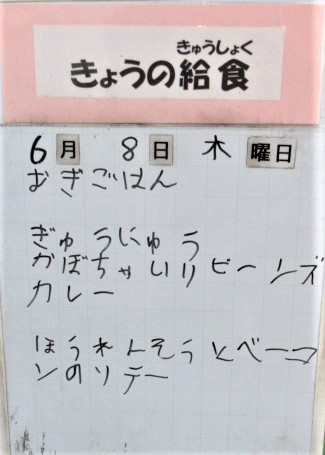 きゅうしょく
きょうの給食
6月 8日 木曜日
むぎごはん
ぎゅうにゅう
かぼちゃいりビーンズ
カレー
ほうれんそうとベーコ
ンのソテー